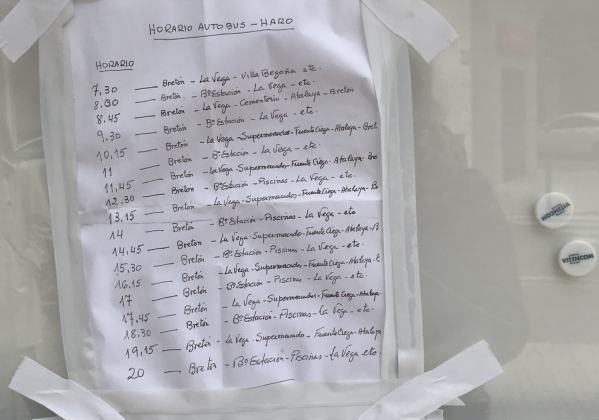 HORARIO AUTOBUS - HARO
HORARIO
7,30 — Bretón - La Vega - Villa Begoña etc.
8,00 — Bretón - Bº Estación - La Vega - etc.
8,45 — Bretón - La Vega - Cementerio - Atalaya - Bretón
9,30 — Bretón - Bº Estación - La Vega - etc.
10,15 — Bretón - La Vega - Supermercados - Fuente Ciega - Atalaya - Bret
11 — Bretón - Bº Estación - La Vega - etc.
11,45 — Bretón - La Vega - Supermercados - Fuente Ciega - Atalaya - Bre
12,30 — Bretón - Bº Estación - Piscinas - La Vega - etc.
13,15 — Bretón - La Vega - Supermercados - Fuente Ciega - Atalaya - B
14 — Bretón - Bº Estación - Piscinas - La Vega - etc
14,45 — Bretón - La Vega - Supermercados - Fuente Ciega - Atalaya - B
15,30 — Bretón - Bº Estación - Piscinas - La Vega - etc.
16,15 — Bretón - La Vega - Supermercados - Fuente Ciega - Atalaya -
17 — Bretón - Bº Estación - Piscinas - La Vega - etc.
17,45 — Bretón - La Vega - Supermercados - Fuente Ciega - Atalaya
18,30 — Bretón - Bº Estación - Piscinas - La Vega - etc.
19,15 — Bretón - La Vega - Supermercados - Fuente Ciega - Atalaya
20 — Bretón - Bº Estación - Piscinas - La Vega etc.